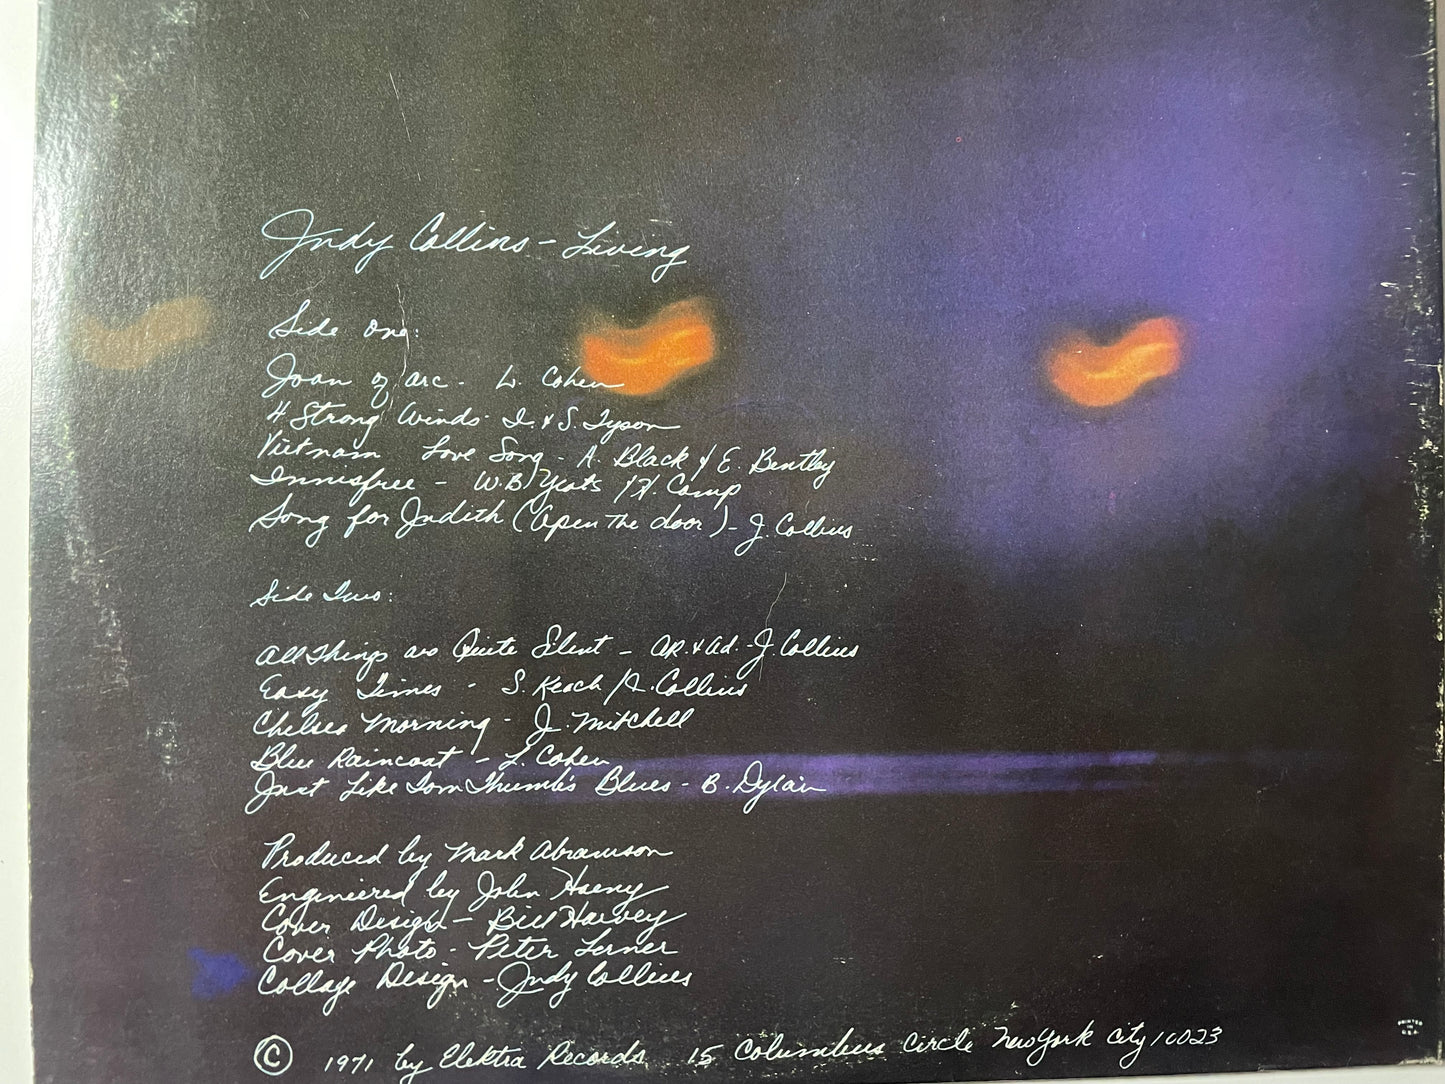 Judy Collins - Living
Side One:
Joan of Arc - L. Cohen
4 Strong Winds - I. & S. Tyson
Vietnam Love Song - A. Black & E. Bentley
Innisfree - W.B. Yeats / H. Camp
Song for Judith (Open The door) - J. Collins
Side Two:
All Things are Quite Silent - AR. & Ad. - J. Collins
Easy Times - S. Keach / J. Collins
Chelsea Morning - J. Mitchell
Blue Raincoat - L. Cohen
Just Like Tom Thumb's Blues - B. Dylan
Produced by Mark Abramson
Engineered by John Haeny
Cover Design - Bill Harvey
Cover Photo - Peter Lerner
Collage Design - Judy Collins
© 1971 by Elektra Records 15 Columbus Circle New York City 10023
PRINTED
IN
U.S.A.